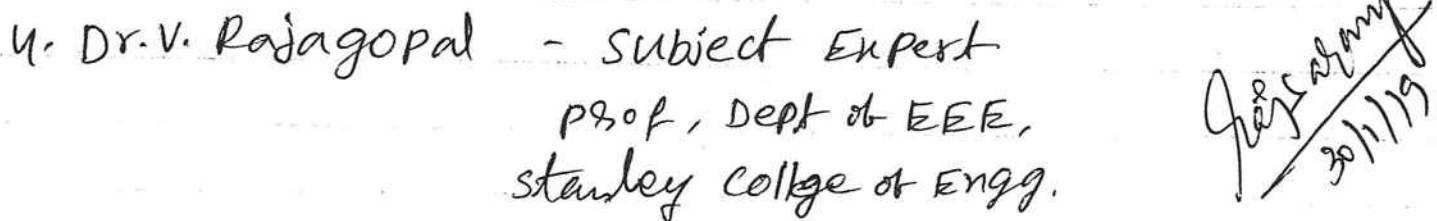 4. Dr. V. Rajagopal - Subject Expert
Prof, Dept of EEE,
Stanley Collge of Engg.
30/1/19